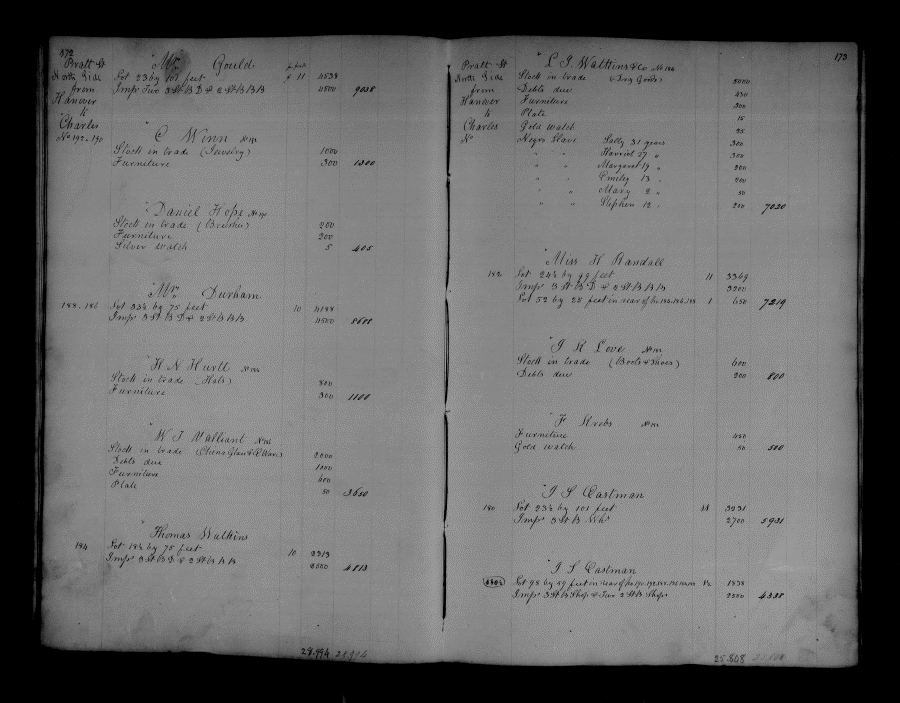 172
Pratt St
North Side
from
Hanover
to
Charles
No 192-190
Mrs Gould
Lot 23 by 101 feet 11 4538
Imps Two 3 St B D & 2 St B B B 4500 9038
C Winn No 192
Stock in trade (Jewelry) 1000
Furniture 300 1300
Daniel Hope No 190
Stock in trade (Brushes) 200
Furniture 200
Silver watch 5 405
Mrs Durham
188-186 Lot 23½ by 75 feet 10 4188
Imps 3 St B D & 2 St B B B 4500 8688
H N Hurtt No 188
Stock in trade (Hats) 800
Furniture 300 1100
W T Valliant No 186
Stock in trade (China Glass & Q Ware) 2000
Debts due 1000
Furniture 600
Plate 50 3650
Thomas Watkins
184 Lot 18½ by 75 feet 10 2313
Imps 3 St B D & 2 St B B B 2500 4813
28.994 28.994
173
Pratt St
North Side
from
Hanover
to
Charles
No
L J Watkins & Co No 184
Stock in trade (Dry Goods) 5000
Debts due 450
Furniture 300
Plate 15
Gold watch 25
Negro Slave Sally 31 years 300
" " Harriet 27 " 300
" " Margaret 19 " 200
" " Emiley 13 " 200
" " Mary 2 " 50
" " Stephen 12 " 200 7020
Miss H Randall
182 Lot 24½ by 99 feet 11 3369
Imps 3 St B D & 2 St B B B 3200
Lot 52 by 25 feet in rear of No 184.186.188 1 650 7219
J R Love No 182
Stock in trade (Boots & Shoes) 600
Debts due 200 800
F Krebs
Furniture 450
Gold watch 50 500
J S Eastman
180 Lot 23½ by 101 feet 3231
Imps 3 St B Whs 2700 5931
J S Eastman
Lot 98 by 59 feet in rear of No 1838
Imps 3 St B Shop & Two 2 St B Shops 2500 4338
25.808 25.808